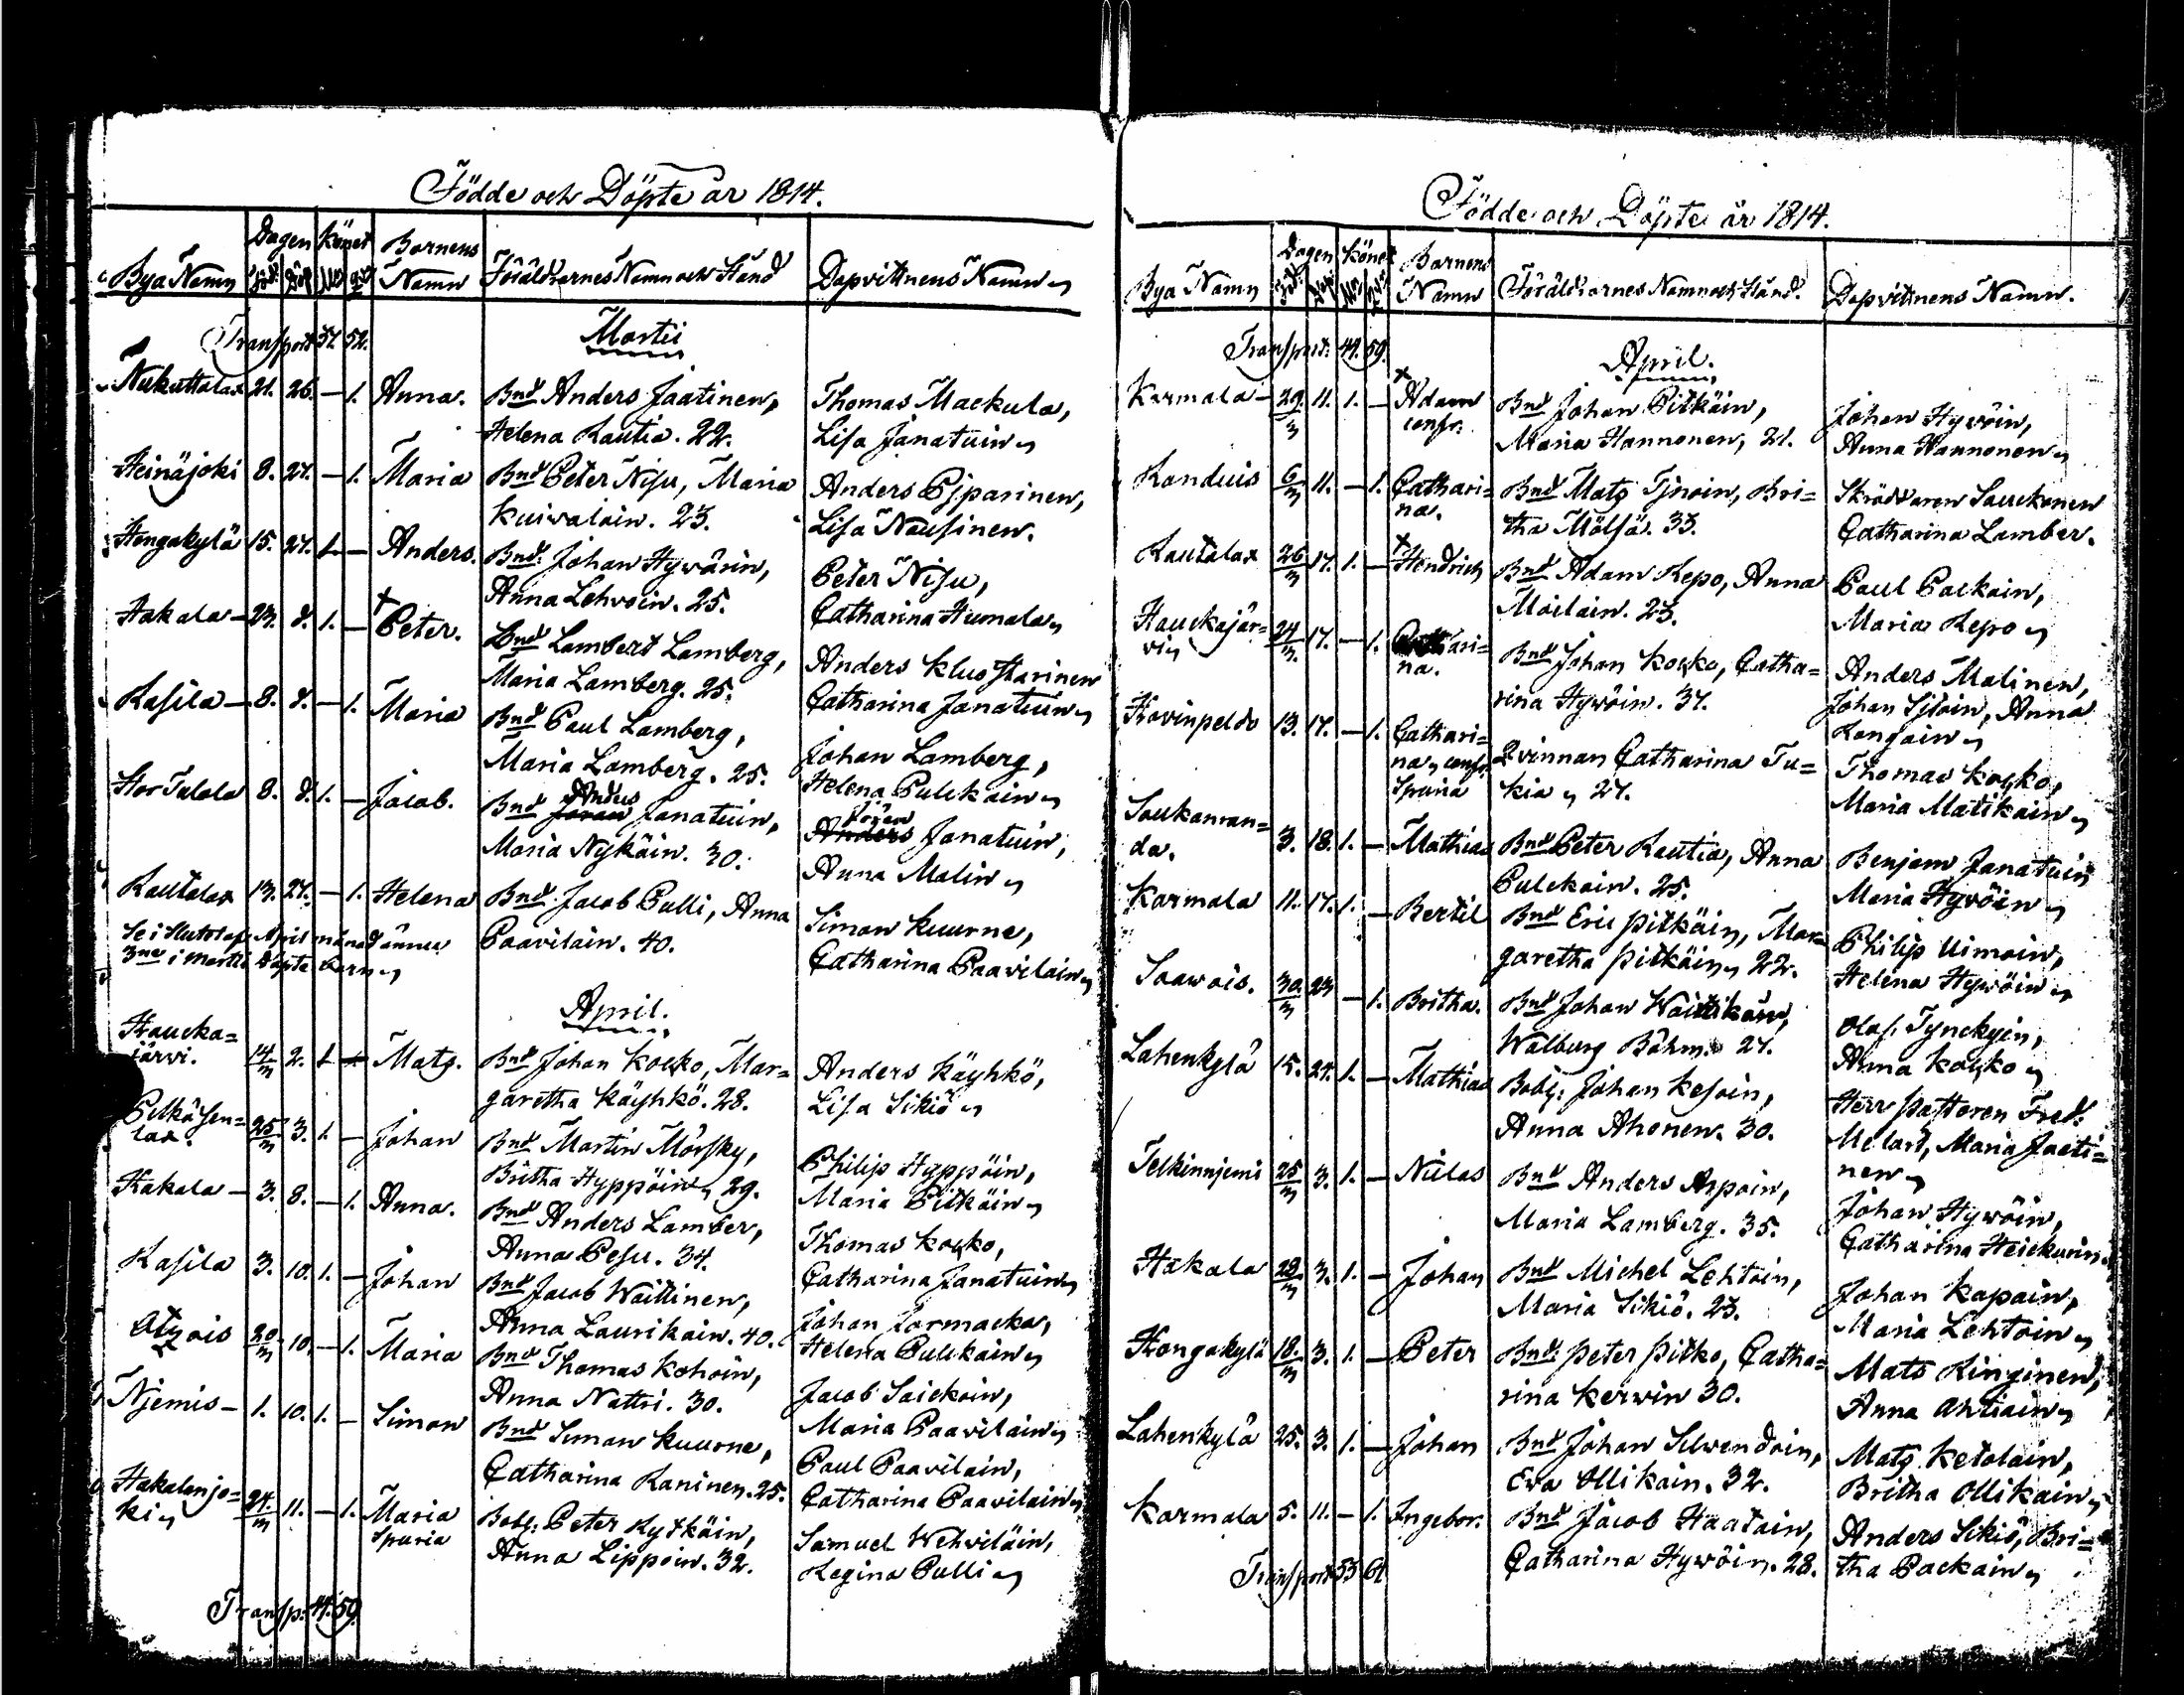 Födde och Döpte år 1814.
Bya Namn Dagen Könet Barnens Namn Föräldrarnes Namn och Stånd Dopvittnens Namn
Föd. Döp. M. Q.
Transport 37. 52.
Martii
Nukuttalax 21. 26. — 1. Anna. Bnd Anders Jaatinen, Thomas Mackula,
Helena Rautia. 22. Lisa Janatuin
Heinäjoki 8. 27. — 1. Maria Bnd Peter Nisu, Maria Anders Pjparinen,
Kuiwalain. 23. Lisa Nausinen.
Hongakylä 15. 27. 1. — Anders. Bnd. Johan Hyvärin, Peter Nisu,
Anna Lehvoin. 25. Catharina Humala
Hakala — 23. d. 1. — Peter. Bnd Lambert Lamberg, Anders Klus Harinen
Maria Lamberg. 25. Catharina Janatuin
Kasila — 8. d. — 1. Maria Bnd Paul Lamberg, Johan Lamberg,
Maria Lamberg. 25. Helena Pulckain
Stor Talola 8. d. 1. — Jacob. Bnd Johan Anders Janatuin, Anders Johan Janatuin,
Maria Nykäin. 30. Anna Malin
Rautalax 13. 27. — 1. Helena Bnd. Jacob Pulli, Anna Simon Kuurne,
Paavilain. 40. Catharina Paavilain
Se i slutet af April månad ännu
3ne i Martii döpte barn
April.
Haucka=
järvi. 14/3 2. 1. — Mats. Bnd Johan Kocko, Mar= Anders Käyhkö,
garetha Käyhkö. 28. Lisa Sikiö
Pelkösen=
lax. 25/3 3. 1. — Johan Bnd Martin Mörsky, Philip Hyppöin,
Britha Hyppöin, 29. Maria Pitkäin
Hakala — 3. 8. — 1. Anna. Bnd Anders Lamber, Thomas Kocko,
Anna Pesu. 34. Catharina Janatuin
Kasila 3. 10. 1. — Johan Bnd Jacob Waittinen, Johan Jormacka,
Anna Laurikain. 40. Helena Pulckain
20/3 10. — 1. Maria Bnd Thomas Kohoin, Jacob Saickoin,
Anna Nattri. 30. Maria Paavilain
Njemis — 1. 10. 1. — Simon Bnd Simon Kuurne, Paul Paavilain,
Catharina Kaninen. 25. Catharina Paavilain
Hakalanjo=
ki 24/3 11. — 1. Maria Bobl: Peter Rytkäin, Samuel Wehviläin,
Spuria Anna Lippoin. 32. Regina Pulli
Transp: 44. 59.
Födde och Döpte år 1814.
Bya Namn Dagen Könet Barnens Namn Föräldrarnes Namn och Stånd. Dopvittnens Namn.
Föd. Döp. M. Q.
Transport: 44. 59.
April.
Karmala — 29/3 11. 1. — Adam Bnd Johan Pitkäin, Johan Hyvöin,
confr: Maria Hannonen, 21. Anna Hannonen
Konduis 6/3 11. — 1. Cathari= Bnd Mats Tjnoin, Bri= Skräddaren Sauckonen
na. tha Mölsä. 33. Catharina Lamber.
Rautalax 26/3 17. 1. — Hendrich Bnd Adam Repo, Anna Paul Packain,
Moilain. 23. Maria Repo
Hauckajär=
vi 24/3 17. — 1. Cathari= Bnd Johan Kocko, Catha= Anders Malinen,
na. rina Hyvöin. 37. Johan Sitoin, Anna
Rongain
Hovinpeldo 13. 17. — 1. Cathari= Qvinnan Catharina Tu= Thomas Kocko,
na, confr: kia, 27. Maria Matikain
Spuria
Saukanran=
da. 3. 18. 1. — Mathias Bnd Peter Rautia, Anna Benjam Janatuin
Pulckain. 25. Maria Hyvöin
Karmala 11. 17. 1. — Bertil Bnd Eric Pitkäin, Mar= Philip Uimoin,
garetha Pitkäin, 22. Helena Hyvöin
Saawois. 30/3 23 — 1. Britha. Bnd Johan Waittikain, Olof. Tynckyin,
Walburg Böhm. 27. Anna Kocko
Lahenkylä 15. 24. 1. — Mathias Bobl: Johan Kesoin, Herr Pastoren Fred.
Anna Ahonen. 30. Melart, Maria Jaati=
nen
Telkinnjemi 25/3 3. 1. — Niilas Bnd Anders Aspoin, Johan Hyvöin,
Maria Lamberg. 35. Catharina Heickurin.
Hakala 28/3 3. 1. — Johan Bnd Michel Lehtoin, Johan Kapain,
Maria Sikiö. 23. Maria Lehtoin
Hongakylä 18/3 3. 1. — Peter Bnd: Peter Pitko, Catha= Mats Kinginen,
rina Kerwin 30. Anna Ahtiain
Lahenkylä 25. 3. 1. — Johan Bnd Johan Silwendoin, Mats Ketolain,
Ewa Ollikain. 32. Britha Ollikain
Karmala 5. 11. — 1. Ingebor. Bnd Jacob Haatain, Anders Sikiö, Bri=
Catharina Hyvöin. 28. tha Packain
Transport 53 64